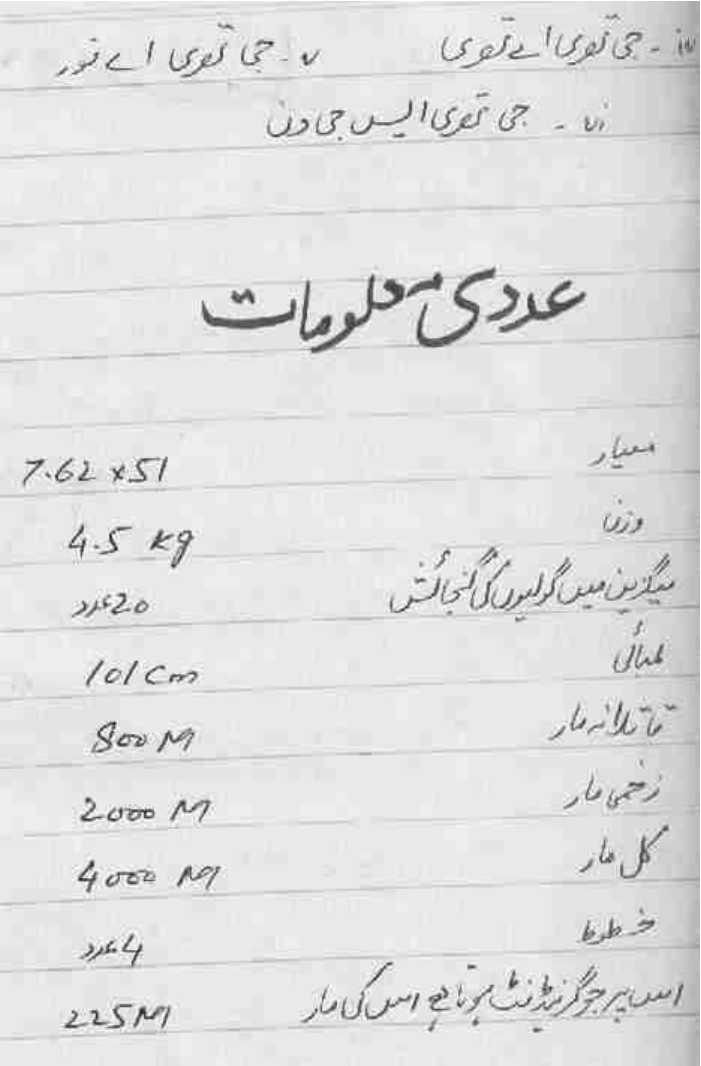 iv - جی تھری اے تھری v - جی تھری اے فور
vi - جی تھری ایس جی ون
عددی معلومات
معیار 7.62 x 51
وزن 4.5 kg
میگزین میں گولیوں کی گنجائش 20 عدد
لمبائی 101 Cm
قاتلانہ مار 800 M
زخمی مار 2000 M
کل مار 4000 M
خطوط 4 عدد
اس پر جو گرنیڈ فٹ ہوتا ہے اس کی مار 225 M